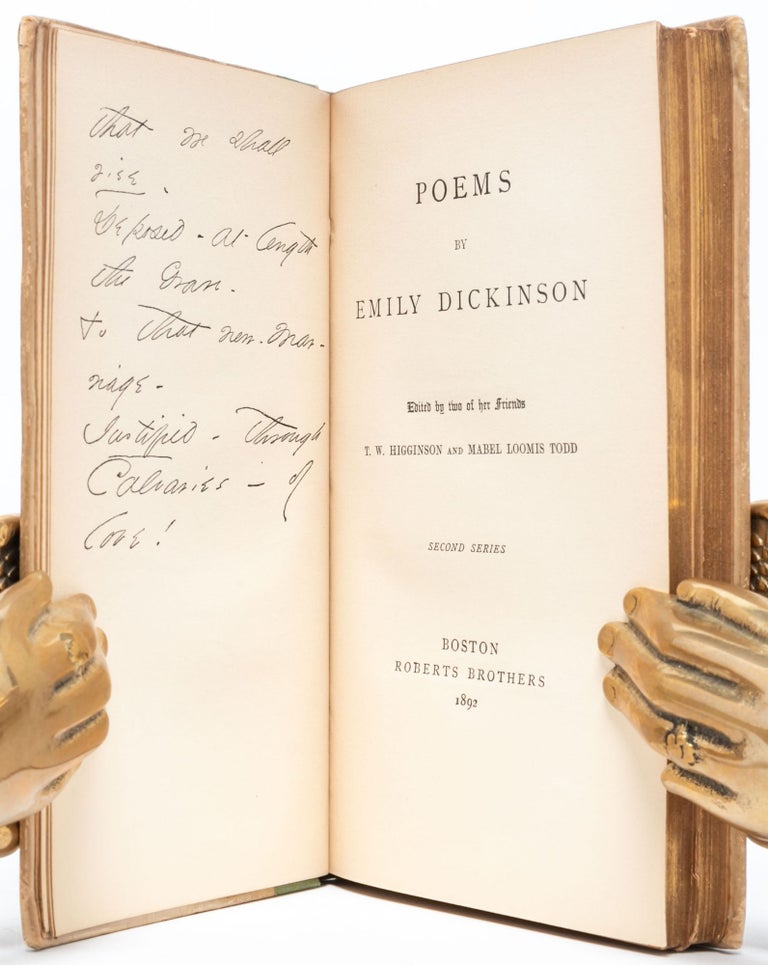 that we shall
rise.
Deposed - at - length
the Grave.
to that new - Mar-
riage -
Justified - through
Calvaries - of
Love!
POEMS
BY
EMILY DICKINSON
Edited by two of her Friends
T. W. HIGGINSON AND MABEL LOOMIS TODD
SECOND SERIES
BOSTON
ROBERTS BROTHERS
1892